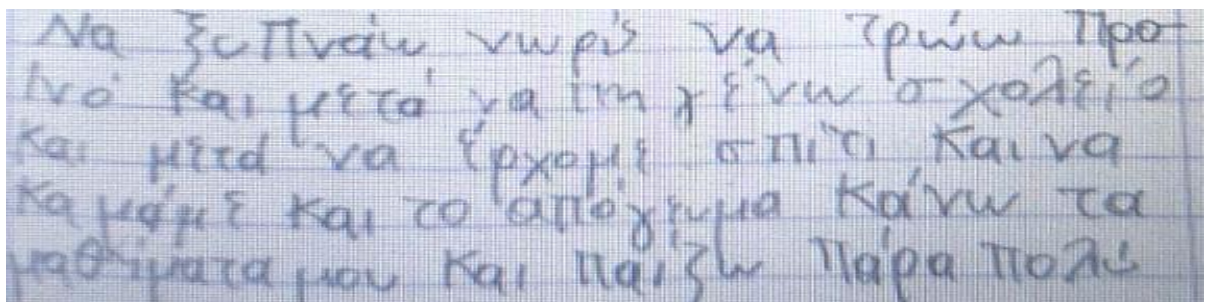 Να ξυπνάω νωρίς να τρώω προ-
ινό και μετά να πηγένω σχολείο
και μετά να έρχομε σπίτι και να
καμόμε και το απόγευμα κάνω τα
μαθήματα μου και παίζω πάρα πολύ